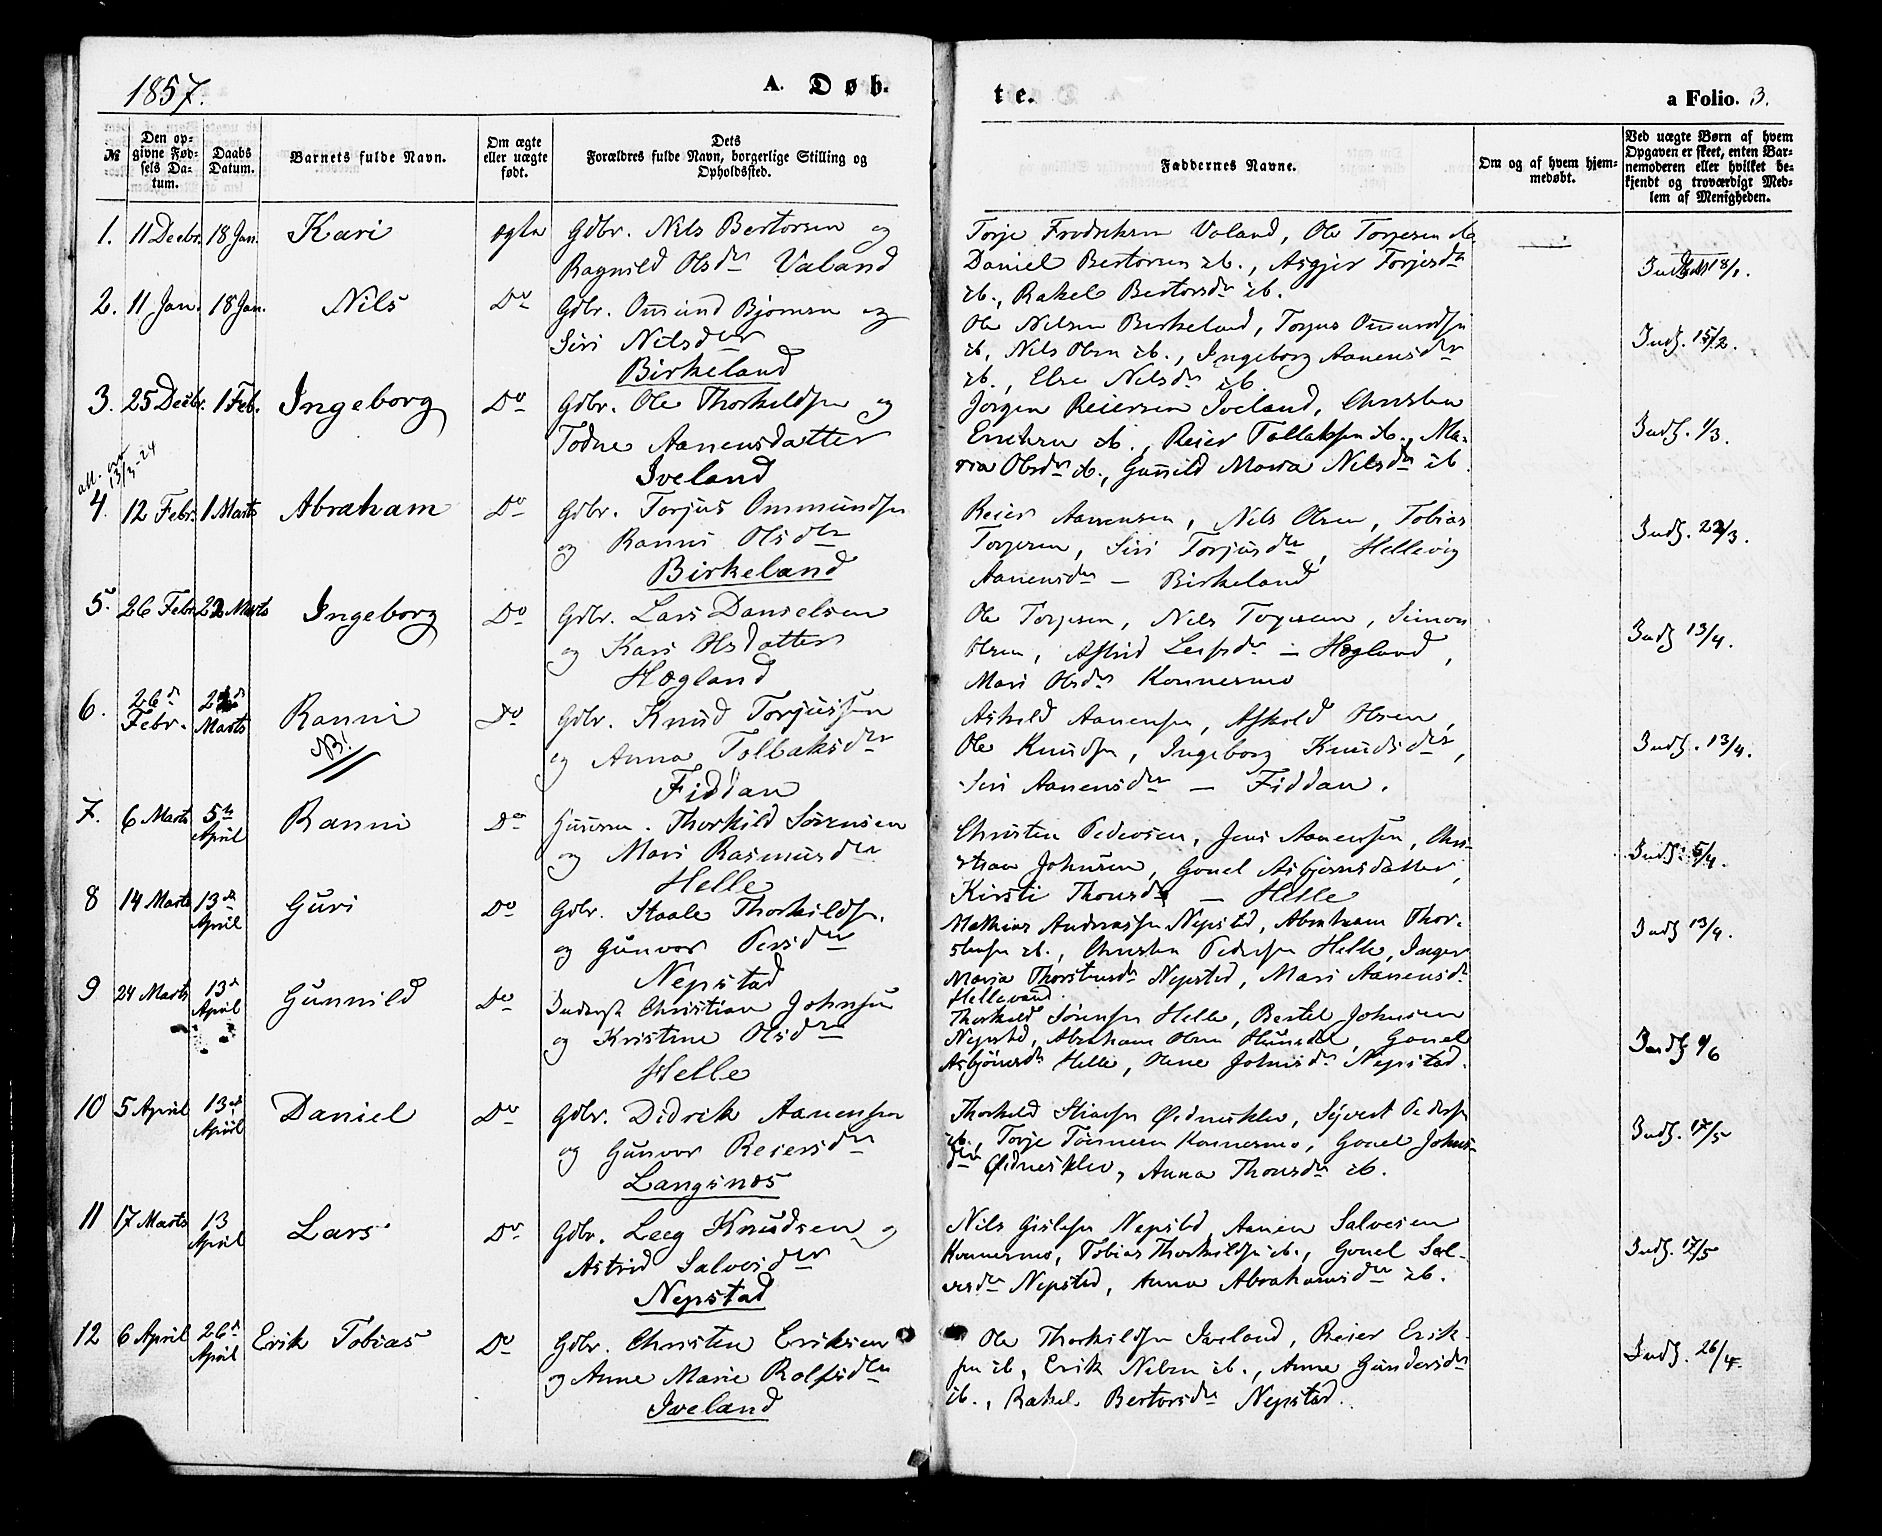 1857.
A. Døbte.
a Folio. 3.
№
Den opgivne Fødsels Datum.
Daabs Datum.
Barnets fulde Navn.
Om ægte eller uægte født.
Dets Forældres fulde Navn, borgerlige Stilling og Opholdssted.
Faddernes Navne.
Om og af hvem hjemmedøbt.
Ved uægte Børn af hvem Opgaven er skeet, enten Barnemoderen eller hvilket bekjendt og troværdigt Medlem af Menigheden.
1. 11 Decbr. 18 Jan. Kari ægte Gdbr. Nils Bertorsen og
Ragnild Olsdr Valand
Torje Fredriksen Valand, Ole Torjesen ib.
Daniel Bertorsen ib., Asgjer Torjesdr
ib., Rakel Bertorsdr ib.
Inds. 18/1.
2. 11 Jan. 18 Jan. Nils Do Gdbr. Omund Bjornsen og
Siri Nilsdtr
Birkeland
Ole Nilsen Birkeland, Torjus Omundsen
ib, Nils Olsen ib., Ingeborg Aanensdtr
ib., Else Nilsdr ib.
Inds. 15/2.
3. 25 Decbr. 1 Feb. Ingeborg Do Gdbr. Ole Thorkildsen og
Todne Aanensdatter
Iveland
Jørgen Reiersen Iveland, Christen
Ericksen ib., Reier Tallaksen ib., Ma-
ria Olsdr ib., Gunild Maria Nilsdr ib.
Inds. 1/3.
att. av 13/3-24
4. 12 Febr. 1 Marts Abraham Do Gdbr. Torjus Ommundsen
og Ranni Olsdtr
Birkeland
Reier Aanensen, Nils Olsen, Tobias
Torjesen, Siri Torjusdtr, Hellevig
Aanensdr — Birkeland
Inds. 22/3.
5. 26 Febr. 22 Marts Ingeborg Do Gdbr. Lars Danielsen
og Kari Olsdatter
Høgland
Ole Torjesen, Nils Torjesen, Simon
Olsen, Astrid — Høgland,
Mari Olsdr Konnesmo
Inds. 13/4.
6. 26d Febr. 22d Marts Ranni Do Gdbr. Knud Torjussen
NB!
og Anna Tollaksdtr
Fiddan
Askild Aanensen, Askold Olsen,
Ole Knudsen, Ingeborg Knudsdtr,
Siri Aanensdtr — Fiddan.
Inds. 13/4.
7. 6 Marts 5te April Ranni Do Thorkild Sørensen
og Mari Rasmusdtr
Helle
Christen Pedersen, Jens Aanensen, Chri-
stian Johnsen, Gonel Asbjørnsdatter,
Kirsti Thorsdr — Helle
Inds. 5/4.
8 14 Marts 13de April Guri Do Gdbr. Staale Thorkildsen
og Gunvor Persdtr
Nepstad
Mathias Andreassen Nepstad, Abraham Thor-
stensen ib., Christen Pedersen Helle, Inger
Maria Thorstensdr Nepstad, Mari Aanensdr
Hellevand.
Inds 13/4.
9 24 Marts 13d April Gunnild Do Inderst Christian Johnsen
og Kristine Olsdtr
Helle
Thorkild Sørensen Helle, Bertel Johnsen
Nepstad, Abraham Olsen, Gonel
Asbjönsdr Helle, Olene Johnsdr Nepstad.
Inds 1/6
10 5 April 13de April Daniel Do Gdbr. Didrik Aanensen
og Gunvor Reiersdtr
Langsnes
Thorkild Øidnesklev, Syvert Pedersen
ib., Torje Tönnesen Konnesmo, Gonel Johns-
dtr Øidnesklev, Anna Thorsdr ib.
Inds. 17/5
11 17 Marts 13 April Lars Do Gdbr. Leeg Knudsen og
Astrid Salvesdtr
Nepstad
Nils Gislesen Nepstad, Aanen Salvesen
Konnesmo, Tobias Thorkildsen ib., Gonel Sal-
vesdtr Nepstad, Anna Abrahamsdtr ib.
Inds. 17/5
12 6 April 26d April Erik Tobias Do Gdbr. Christen Eriksen
og Anne Marie Rolfsdtr
Iveland
Ole Thorkildsen Iveland, Reier Erik-
sen ib, Erik Nilsen ib., Anne Gundersdtr
ib., Rakel Bertorsdr Nepstad.
Inds. 26/4.